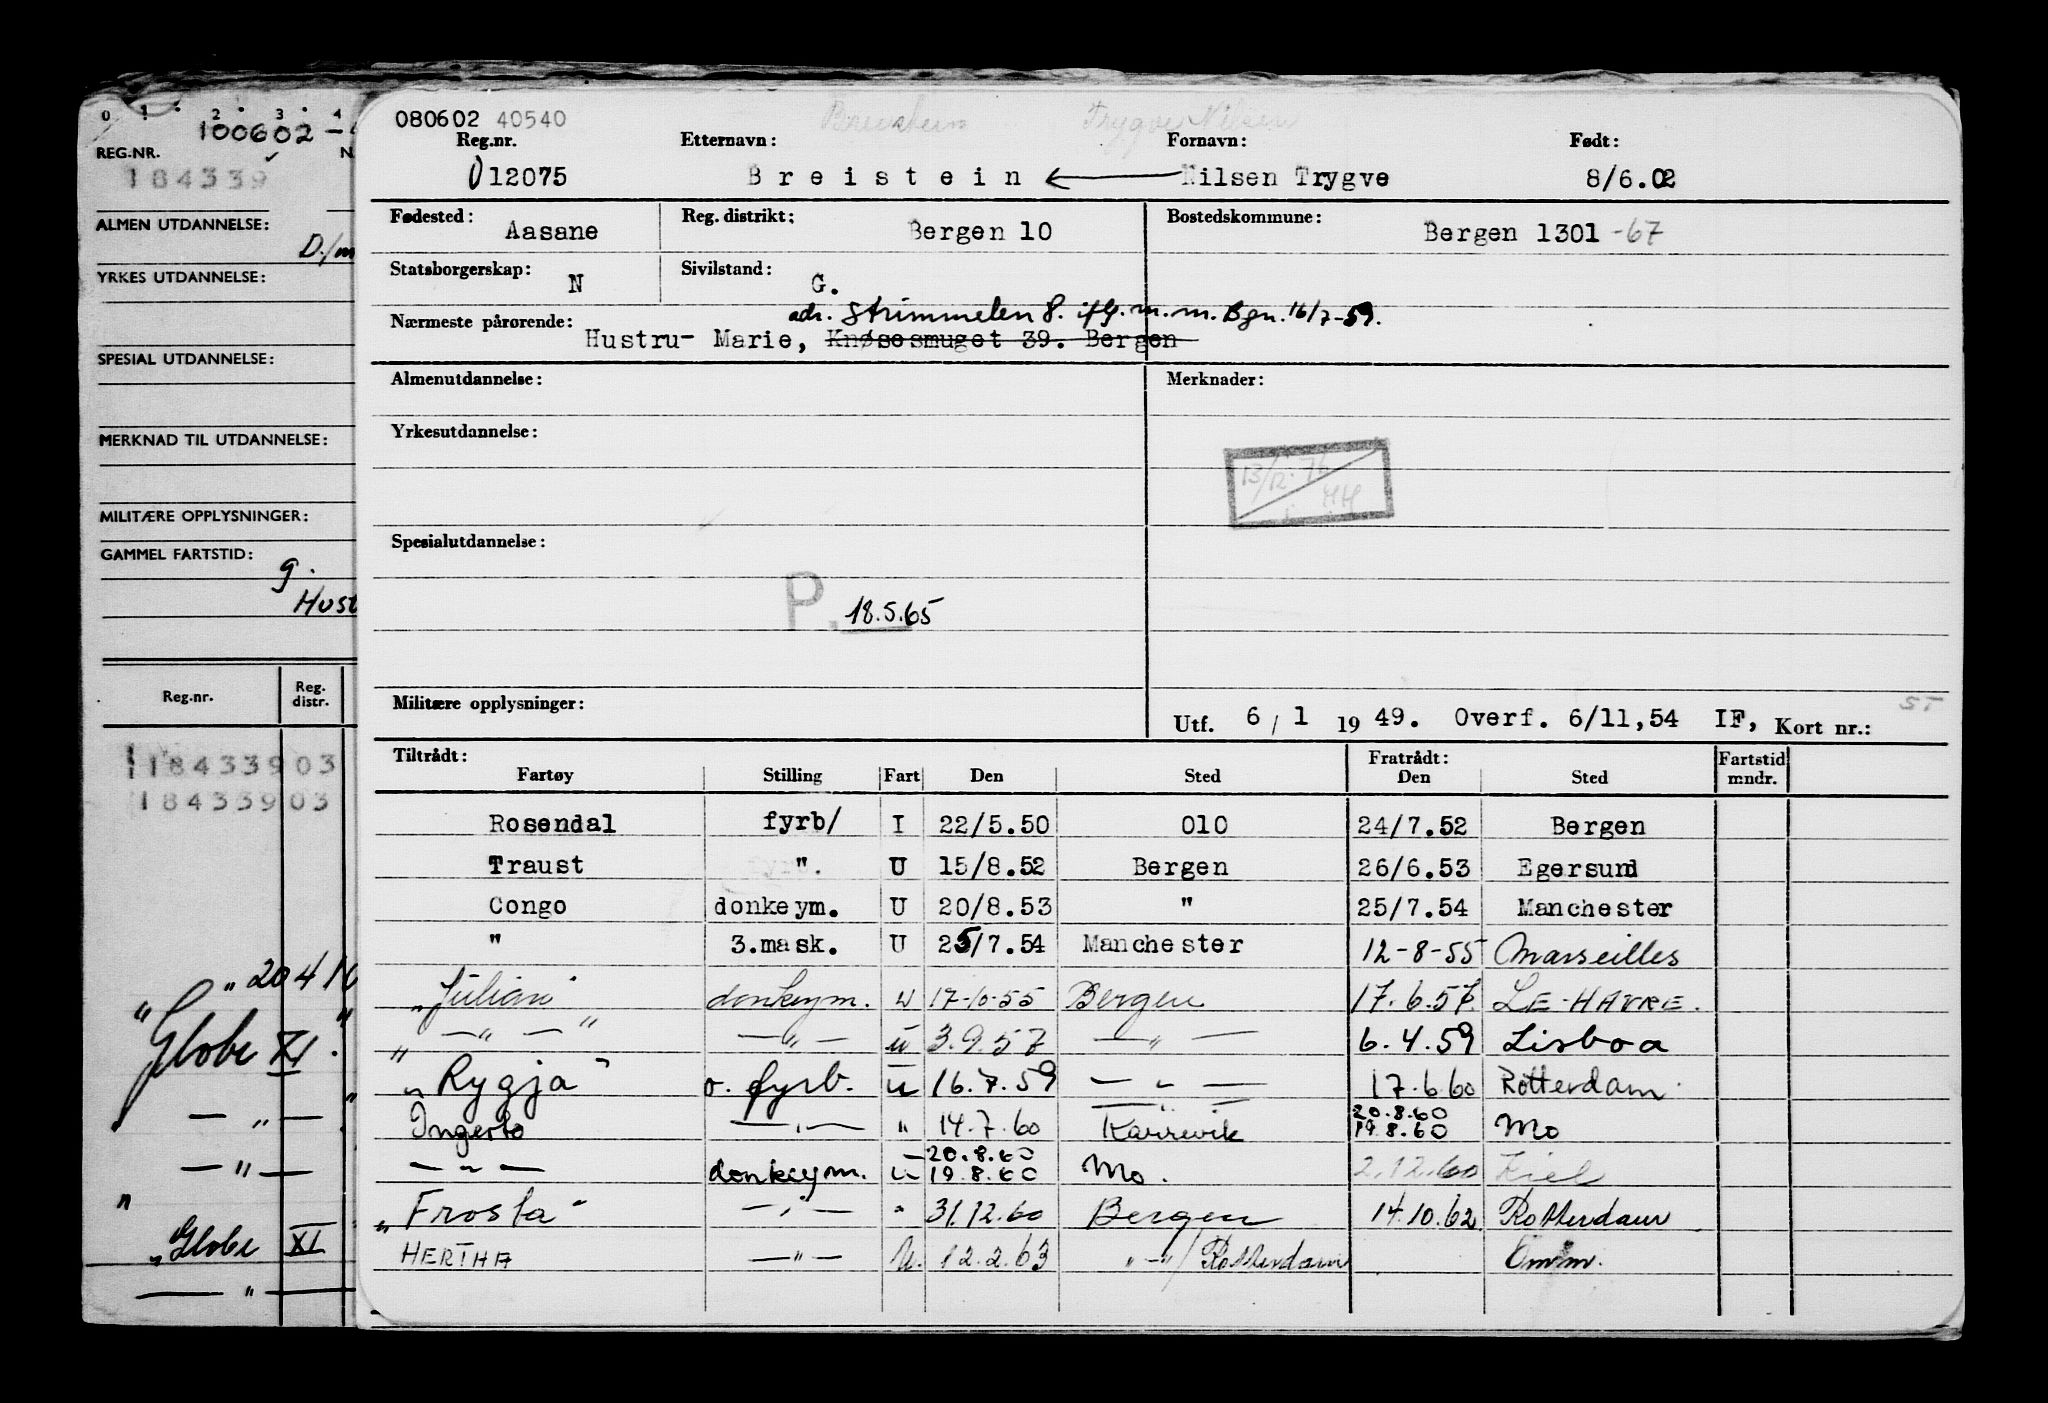 0 1 2 3 4
100602 -
REG.NR. N
184339
ALMEN UTDANNELSE:
D./m
YRKES UTDANNELSE:
SPESIAL UTDANNELSE:
MERKNAD TIL UTDANNELSE:
MILITÆRE OPPLYSNINGER:
GAMMEL FARTSTID:
g.
Hust
Reg.nr. Reg. distr.
118433903
18433903
"20410
"Globe XI."
— " — "
— " —
"
"Globe XI
— " —
080602 40540 Breistein Trygve Nilsen
Reg.nr. Etternavn: Fornavn: Født:
012075 Breistein ← Nilsen Trygve 8/6.02
Fødested: Aasane Reg. distrikt: Bergen 10 Bostedskommune: Bergen 1301 -67
Statsborgerskap: N Sivilstand: G.
adr. Strimmelen 8. iflg. m.m. Bgn. 16/7-59.
Nærmeste pårørende: Hustru- Marie, Knøsesmuget 39. Bergen
Almenutdannelse: Merknader:
Yrkesutdannelse:
13/12.76
HH
Spesialutdannelse:
P. 18.5.65
Militære opplysninger: Utf. 6 / 1 1949. Overf. 6/11,54 IF, Kort nr.: ST
Tiltrådt: Fratrådt: Fartstid
Fartøy Stilling Fart Den Sted Den Sted mndr.
Rosendal fyrb/ I 22/5.50 010 24/7.52 Bergen
Traust ". U 15/8.52 Bergen 26/6.53 Egersund
Congo donkeym. U 20/8.53 " 25/7.54 Manchester
" 3.mask. U 25/7.54 Manchester 12-8-55 Marseilles
"Julian" donkeym. U 17-10-55 Bergen 17.6.57. LE-HAVRE.
— " — " — " — u 3.9.57 — " — 6.4.59 Lisboa
"Rygja" o. fyrb. u 16.7.59 — " — 17.6.60 Rotterdam.
20.8.60
Ingerto — " — " 14.7.60 Kårevik 19.8.60 Mo
20.8.60
— " — donkeym. u 19.8.60 Mo. 2.12.60 Kiel
"Frosta" — " — " 31.12.60 Bergen 14.10.62 Rotterdam
HERTHA — " — U. 12.2.63 " — "/Rotterdam Omm.